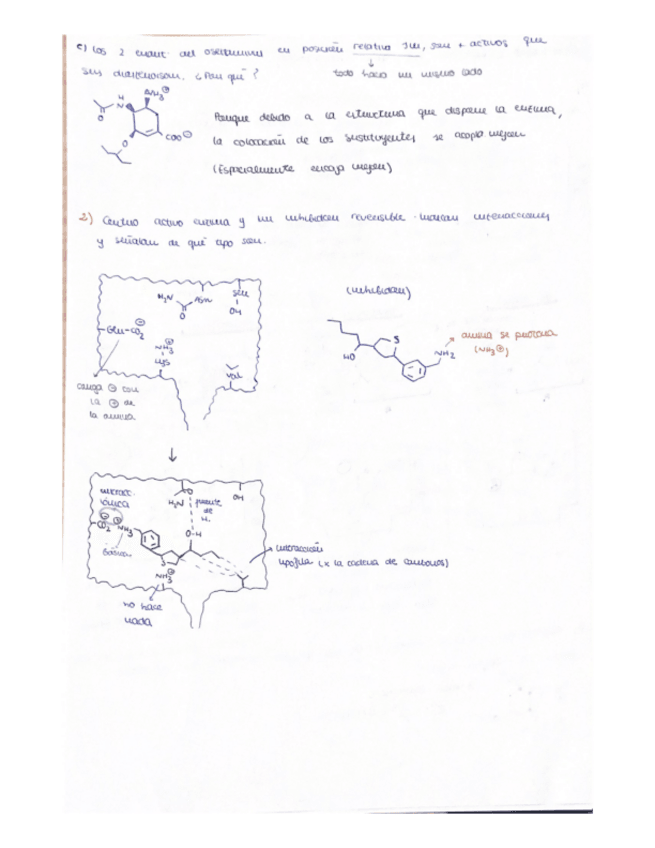 c) Los 2 enant. del oseltamivir en posición relativa sin, son + activos que
sus diastereoisom. ¿Por qué?
todo hacia un mismo lado
H
N
NH3 ⊕
O
O
COO ⊖
Porque debido a la estructura que dispone la enzima,
la colocación de los sustituyentes se acopla mejor
(Espacialmente encaja mejor)
2) Centro activo enzima y un inhibidor reversible. Indicar interacciones
y señalar de qué tipo son.
H2N
O
Asn
Ser
OH
Glu-CO2 ⊖
⊕
NH3
Lys
Val
carga ⊖ con
la ⊕ de
la amina
(inhibidor)
HO
S
NH2
amina se protona
(NH3⊕)
↓
interacc.
iónica
⊖ ⊕
CO2 NH3
H2N
O
puente
de
H.
OH
O-H
S
⊕
NH3
interacción
lipófila (x la cadena de carbonos)
no hace
nada